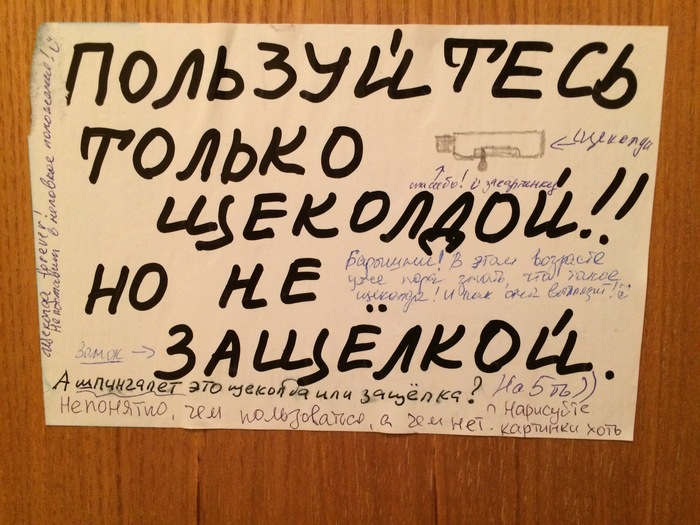 ПОЛЬЗУЙТЕСЬ
ТОЛЬКО
← Щеколда
↑
спасибо! за картинку
ЩЕКОЛДОЙ!!
Барышни! В этом возрасте
уже пора знать, что такое
щеколда! И как она выглядит!
НО НЕ
Замок →
ЗАЩЁЛКОЙ.
А шпингалет это щеколда или защёлка? На 5ть))
Непонятно, чем пользоваться, а чем нет. Нарисуйте
картинки хоть
Щеколда forever!
Не поставит в неловкое положение!